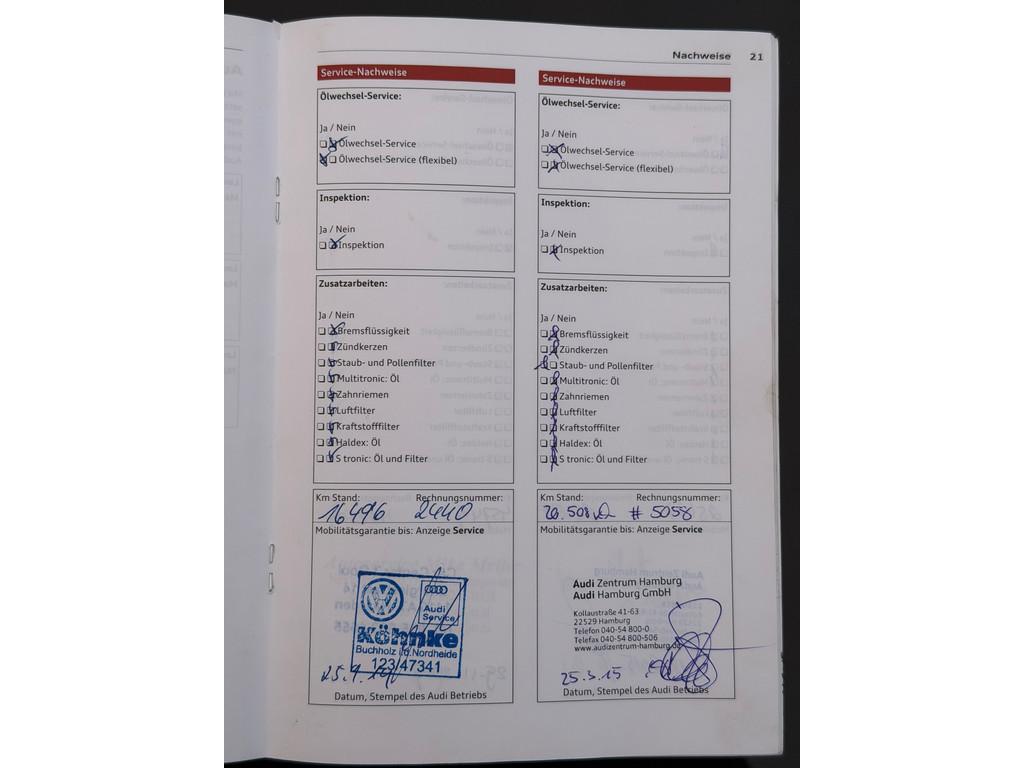 Nachweise 21
Service-Nachweise
Ölwechsel-Service:
Ja / Nein
Ölwechsel-Service
Ölwechsel-Service (flexibel)
Inspektion:
Ja / Nein
Inspektion
Zusatzarbeiten:
Ja / Nein
Bremsflüssigkeit
Zündkerzen
Staub- und Pollenfilter
Multitronic: Öl
Zahnriemen
Luftfilter
Kraftstofffilter
Haldex: Öl
S tronic: Öl und Filter
Km Stand: Rechnungsnummer:
16496 2440
Mobilitätsgarantie bis: Anzeige Service
Audi
Service
Köhnke
Buchholz i.d.Nordheide
123/47341
25.9.14
Datum, Stempel des Audi Betriebs
Service-Nachweise
Ölwechsel-Service:
Ja / Nein
Ölwechsel-Service
Ölwechsel-Service (flexibel)
Inspektion:
Ja / Nein
Inspektion
Zusatzarbeiten:
Ja / Nein
Bremsflüssigkeit
Zündkerzen
Staub- und Pollenfilter
Multitronic: Öl
Zahnriemen
Luftfilter
Kraftstofffilter
Haldex: Öl
S tronic: Öl und Filter
Km Stand: Rechnungsnummer:
26.508 # 5058
Mobilitätsgarantie bis: Anzeige Service
Audi Zentrum Hamburg
Audi Hamburg GmbH
Kollaustraße 41-63
22529 Hamburg
Telefon 040-54 800-0
Telefax 040-54 800-506
www.audizentrum-hamburg.de
25.3.15
Datum, Stempel des Audi Betriebs